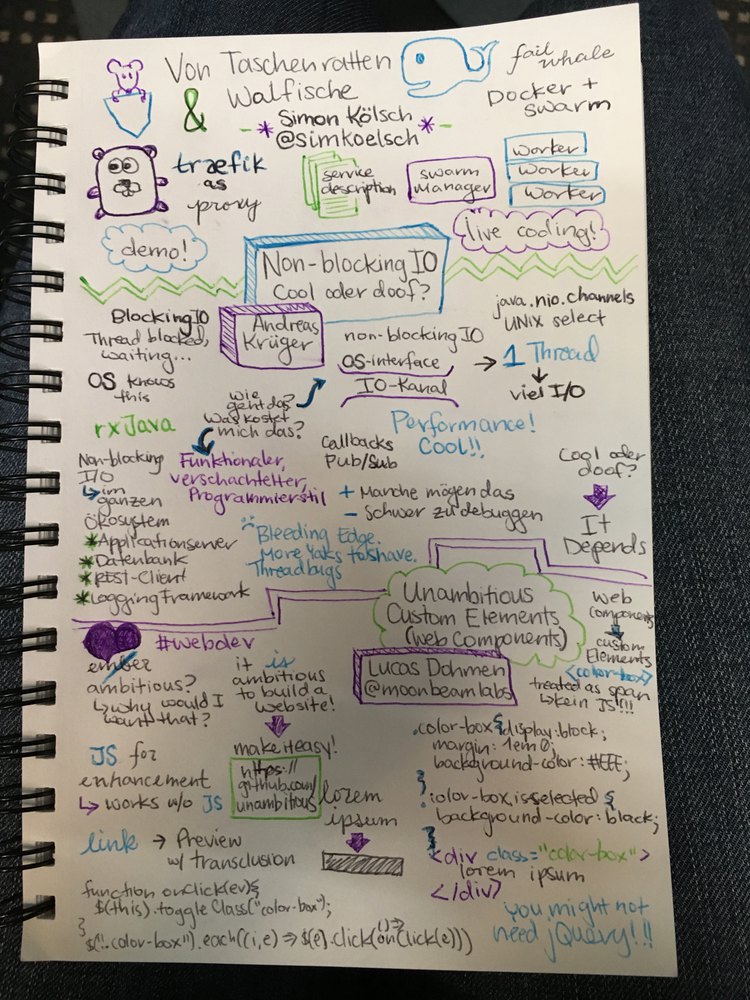 Von Taschenratten
& Walfische
Simon Kölsch
@simkoelsch
fail whale
Docker +
swarm
træfik
as
proxy
service
description
swarm
Manager
Worker
Worker
Worker
demo!
live coding!
Non-blocking IO
Cool oder doof?
Andreas
Krüger
Blocking IO
Thread blocked,
waiting...
OS knows
this
rxJava
non-blocking IO
OS-interface
IO-Kanal
java.nio.channels
UNIX select
→ 1 Thread
viel I/O
wie
geht das?
Was kostet
mich das?
Performance!
Cool!!
Non-blocking
I/O
im
ganzen
Ökosystem
* Applicationserver
* Datenbank
* REST-Client
* Logging Framework
Funktionaler,
verschachtelter,
Programmierstil
Callbacks
Pub/Sub
+ Manche mögen das
- Schwer zu debuggen
Bleeding Edge.
More Yaks to shave.
Threadbugs
Cool oder
doof?
It
Depends
Unambitious
Custom Elements
(Web Components)
Lucas Dohmen
@moonbeamlabs
web
components
custom
Elements
<color-box>
treated as span
kein JS!!!
#webdev
ember
ambitious?
why would I
want that?
it is
ambitious
to build a
website!
make it easy!
https://
github.com/
unambitious
JS for
enhancement
works w/o JS
link → Preview
w/ transclusion
lorem
ipsum
.color-box { display: block;
margin: 1em 0;
background-color: #EEE;
}
.color-box.is-selected {
background-color: black;
}
<div class="color-box">
lorem ipsum
</div>
function onClick(ev){
$(this).toggleClass("color-box");
}
$(".color-box").each((i,e) => $(e).click(() => onClick(e)))
you might not
need jQuery!!!